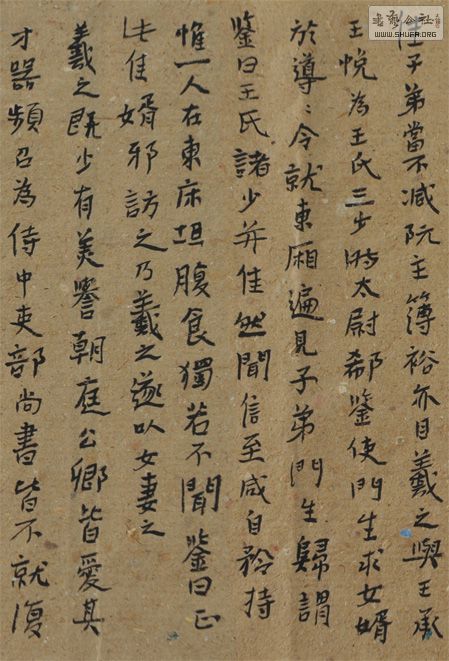 佳子弟當不减阮主簿裕亦目羲之與王承
王悅為王氏三少時太尉郗鑒使門生求女婿
於導〻令就東廂遍見子弟門生歸謂
鑒曰王氏諸少并佳然聞信至咸自矜持
惟一人在東床坦腹食獨若不聞鑒曰正
此佳婿邪訪之乃羲之遂以女妻之
羲之既少有美譽朝庭公卿皆愛其
才器頻召為侍中吏部尚書皆不就復
書藝公社
WWW.SHUFA.ORG